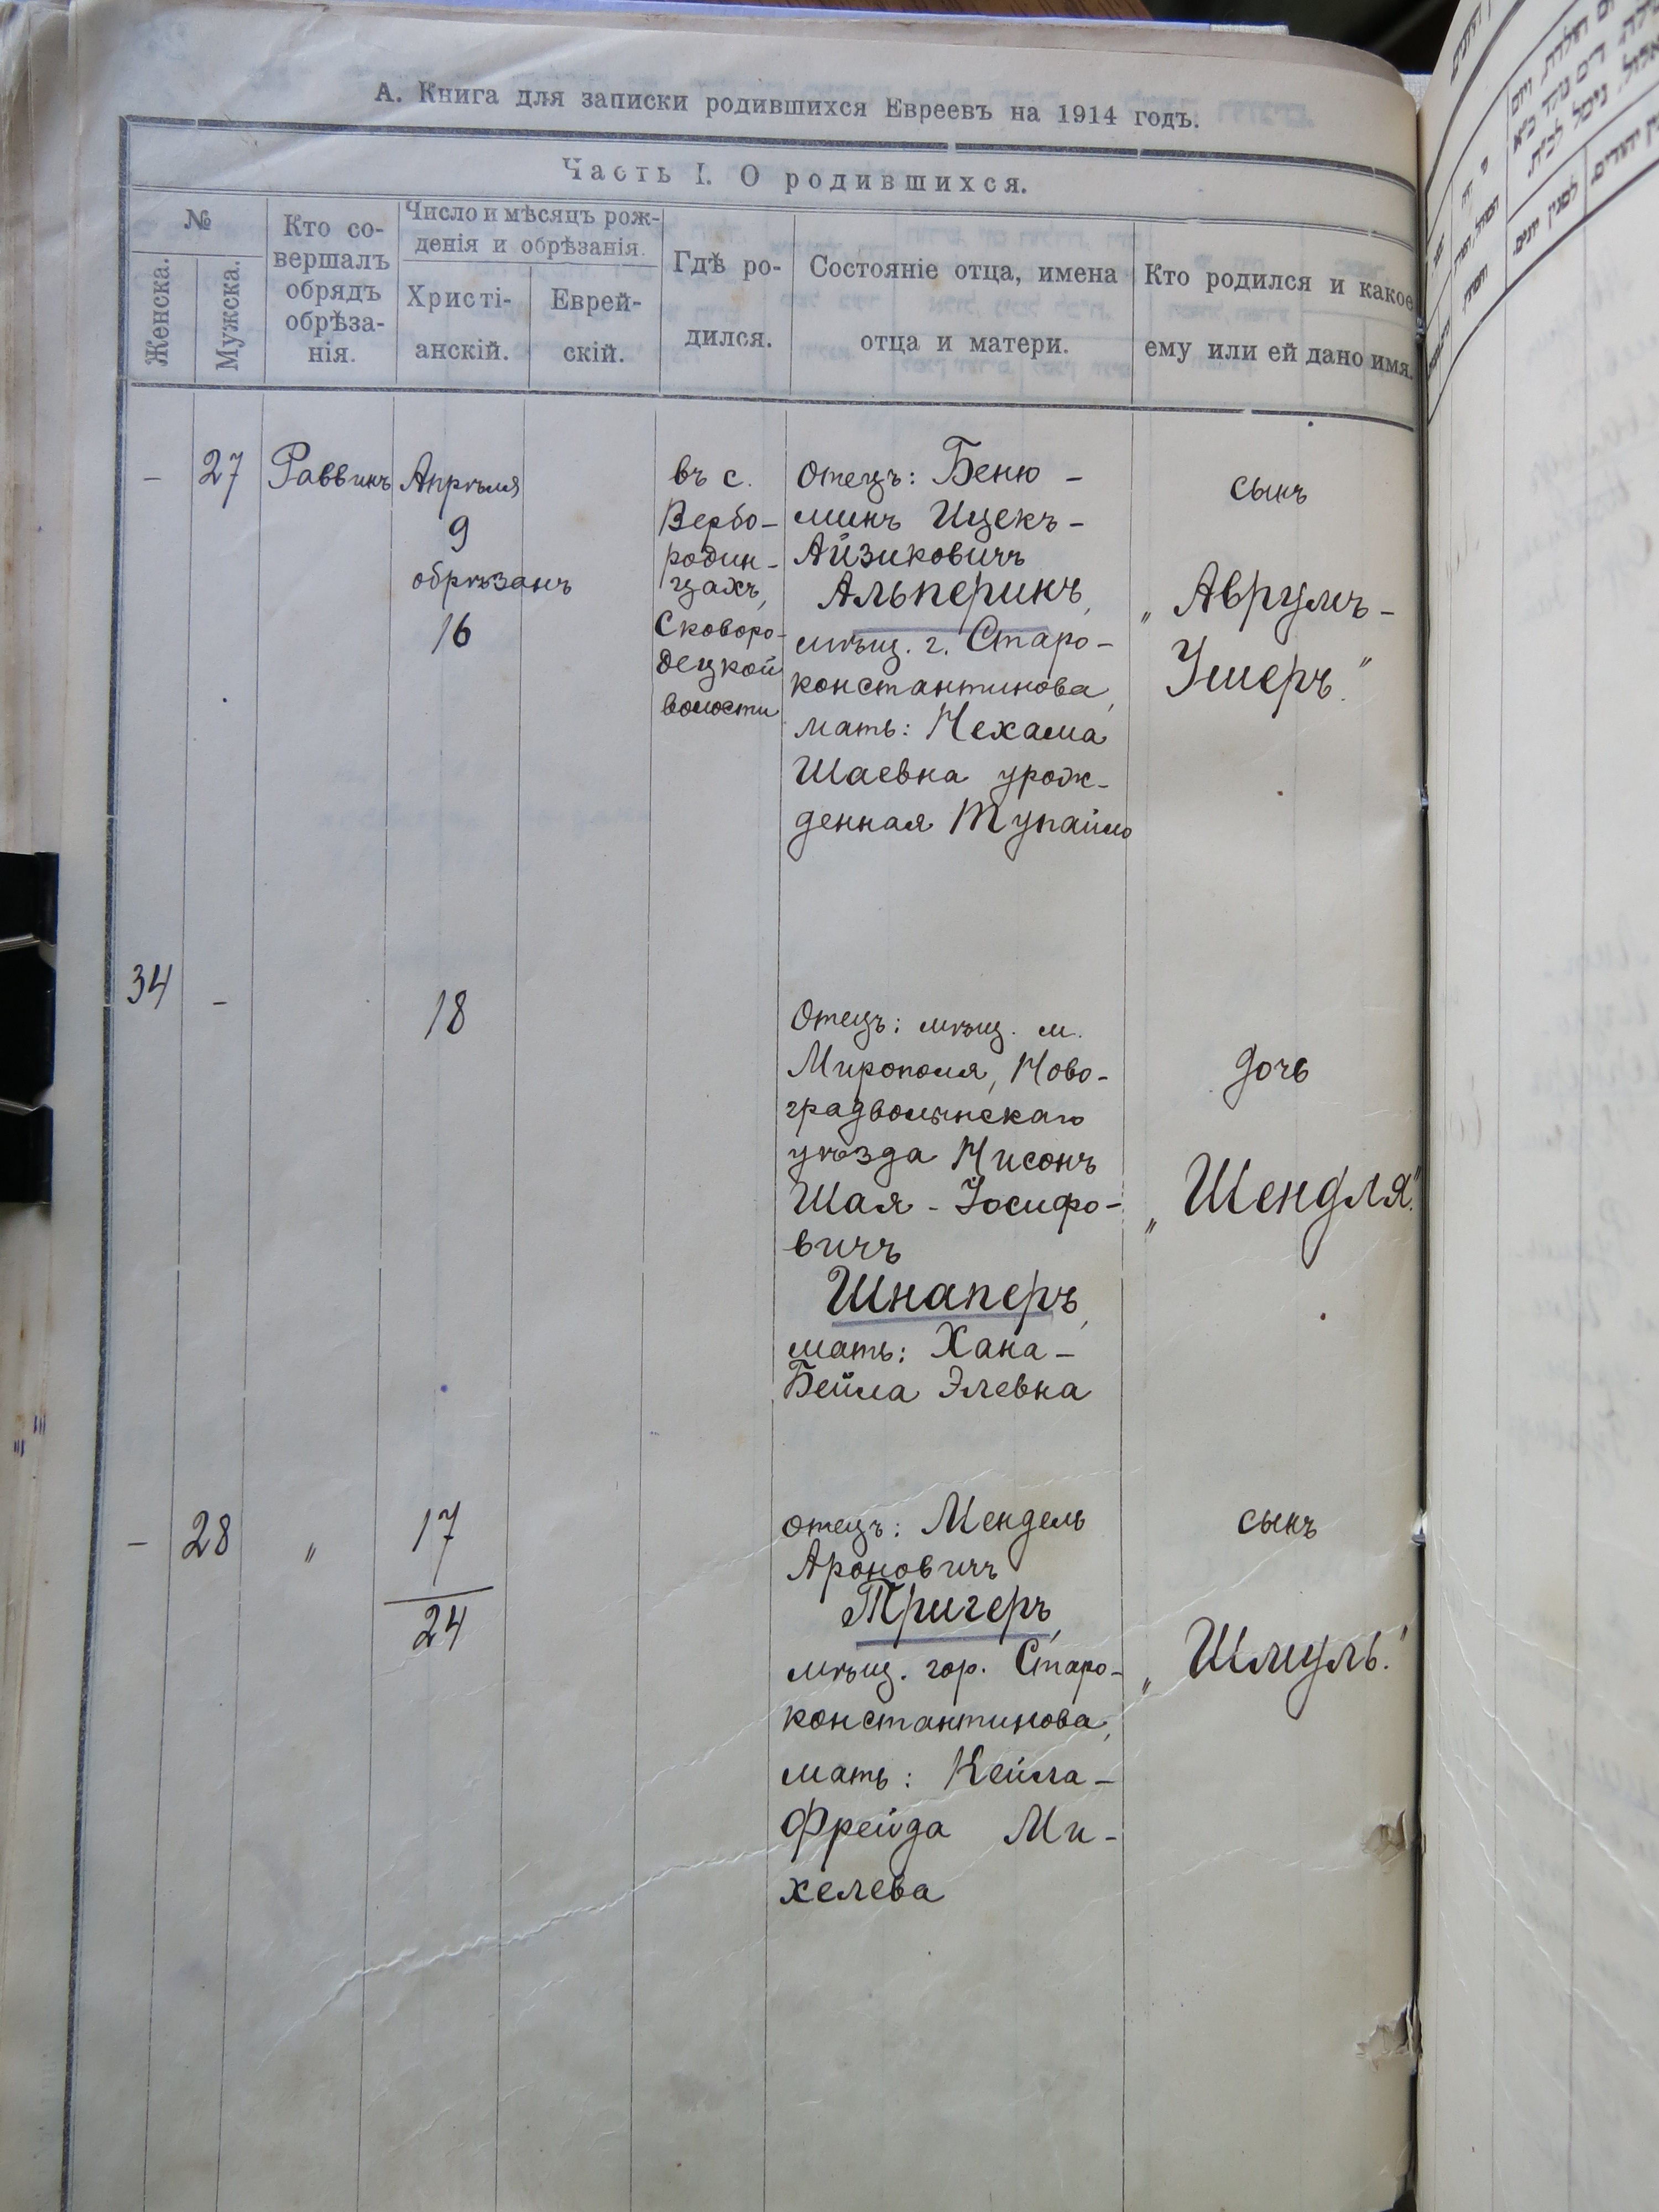 А. Книга для записки родившихся Евреевъ на 1914 годъ.
Часть I. О родившихся.
№
Женска.
Мужска.
Кто со-
вершалъ
обрядъ
обрѣза-
нія.
Число и мѣсяцъ рож-
денія и обрѣзанія.
Христі-
анскій.
Еврей-
скій.
Гдѣ ро-
дился.
Состояніе отца, имена
отца и матери.
Кто родился и какое
ему или ей дано имя.
– 27 Раввинъ
Апрѣля
9
обрѣзанъ
16
въ с.
Вербо-
родин-
цахъ,
Сковоро-
децкой
волости
Отецъ: Беню-
минъ Ицекъ-
Айзиковичъ
Альперинъ,
мѣщ. г. Старо-
константинова,
мать: Нехама
Шаевна урож-
денная Тупайло
сынъ
„Аврумъ-
Ушеръ."
34 –
18
Отецъ: мѣщ. м.
Мирополя, Ново-
градволынскаго
уѣзда Нисонъ
Шая-Іосифо-
вичъ
Шнаперъ,
мать: Хана-
Бейла Элевна
дочь
„Шендля."
– 28 "
17
24
отецъ: Мендель
Ароновичъ
Тригеръ,
мѣщ. гор. Старо-
константинова,
мать: Кейла-
Фрейда Ми-
хелева
сынъ
„Шмуль."